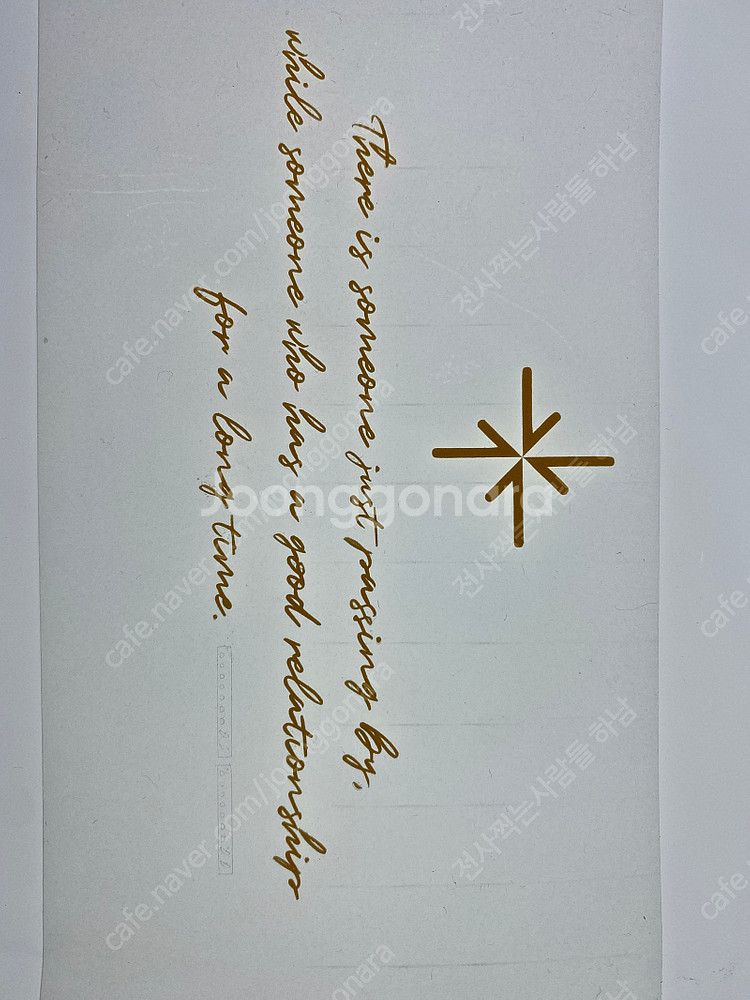 There is someone just passing by,
while someone who has a good relationship
for a long time.
joonggonara
cafe.naver.com/joonggonara
전사찍는사람들 하남